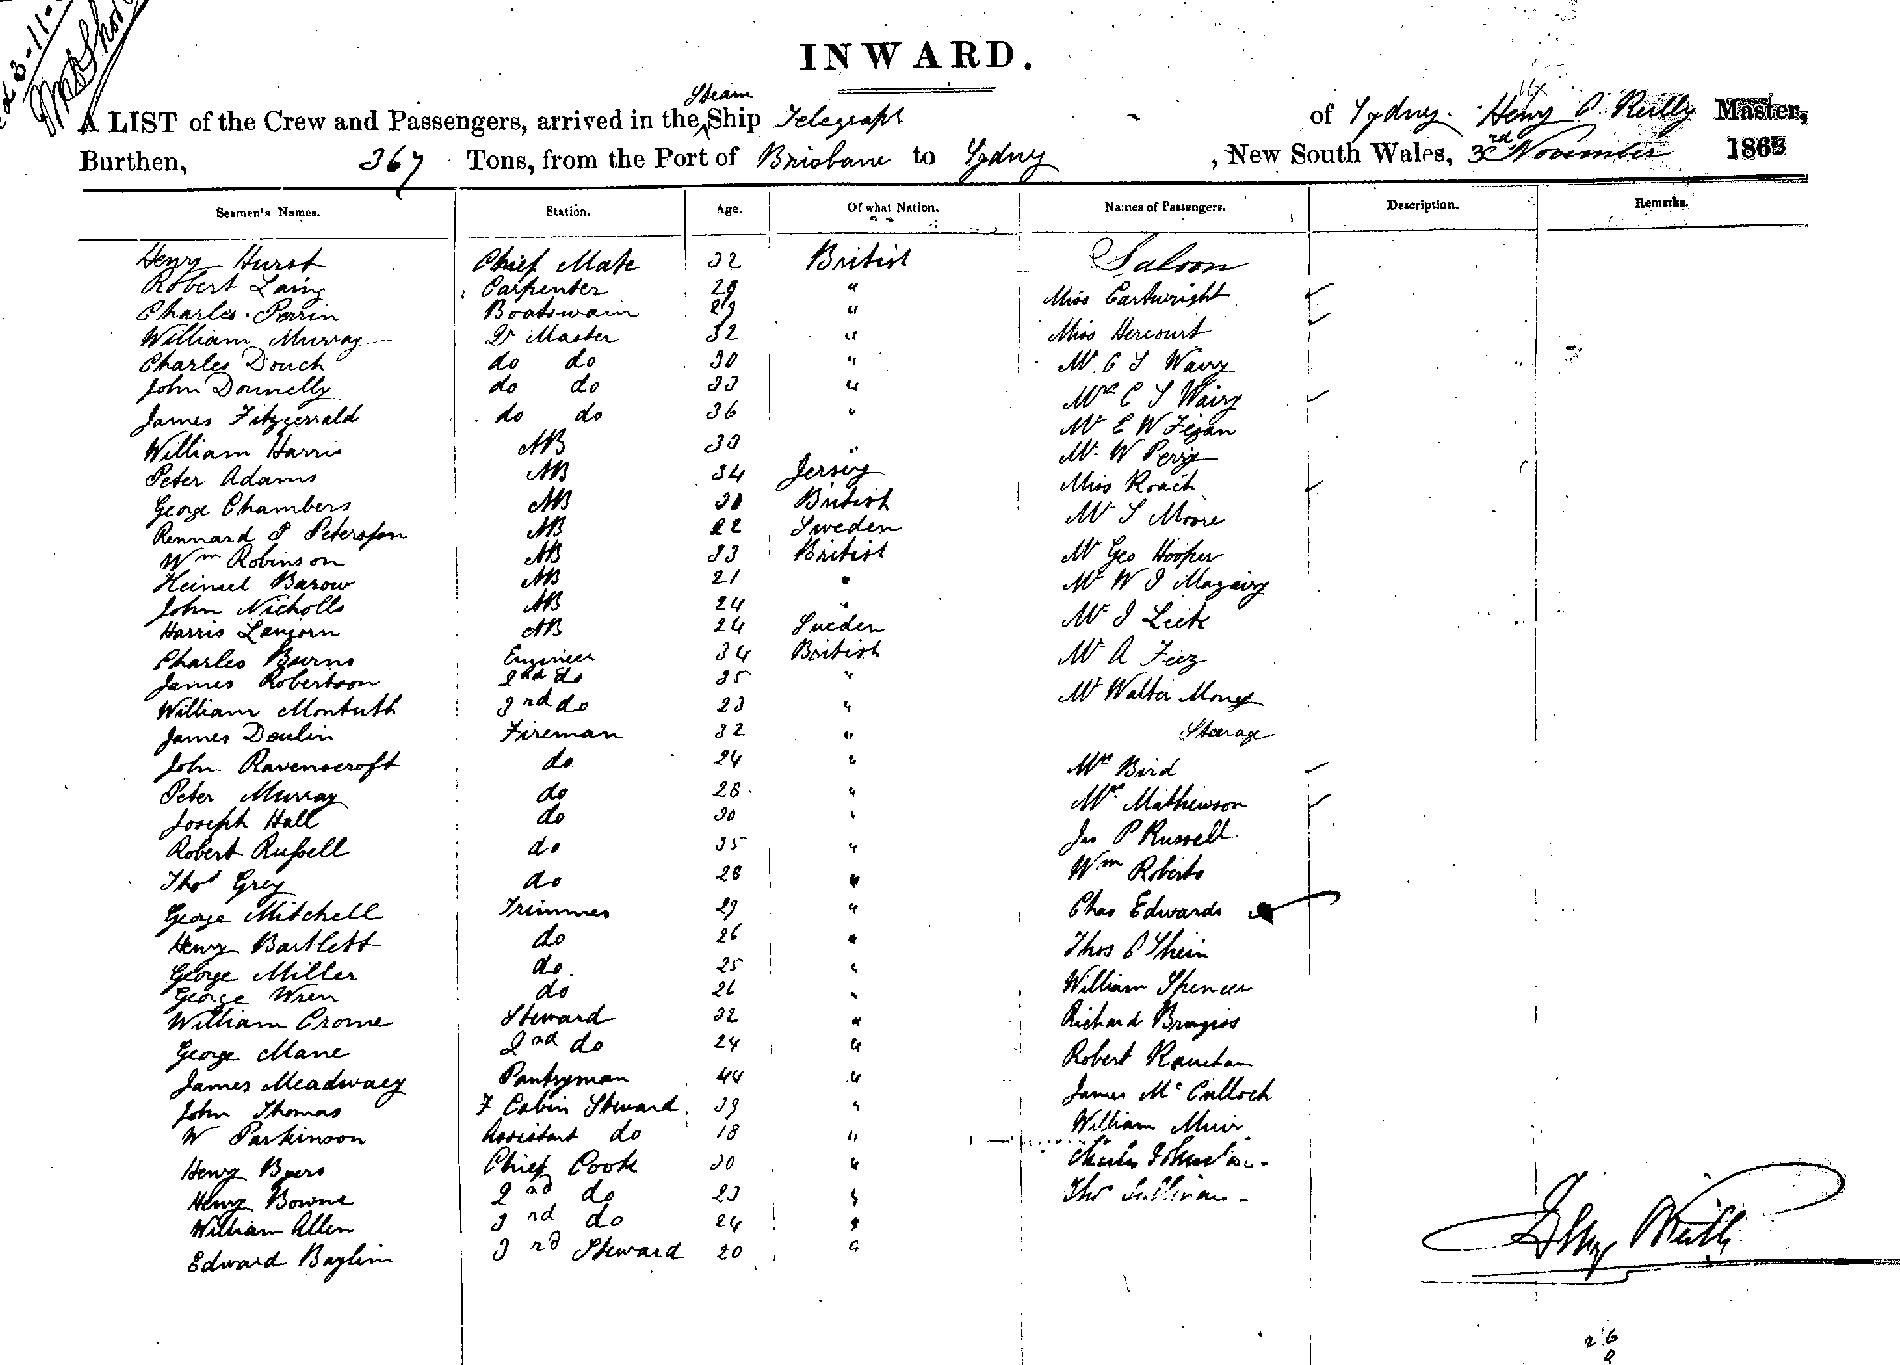 INWARD.
A LIST of the Crew and Passengers, arrived in the Steam Ship Telegraph of Sydney. Henry O'Reilly Master,
Burthen, 367 Tons, from the Port of Brisbane to Sydney, New South Wales, 3rd November 186
Seamen's Names. Station. Age. Of what Nation. Names of Passengers. Description. Remarks.
Henry Hurst Chief Mate 32 British Saloon
Robert Laing Carpenter 29 " Miss Cartwright
Charles Perrin Boatswain 29 " Miss Hercourt
William Murray Qr Master 32 " Mr C S
Charles Douch do do 30 " Mrs C S
John Donnelly do do 33 " Mr E W
James Fitzgerrald do do 36 " Mr W Perry
William Harris AB 30 " Miss Roach
Peter Adams AB 34 Jersey Mr S Moore
George Chambers AB 30 British Mr Geo Hooper
Rennard P Petersson AB 22 Sweden Mr W J
Wm Robinson AB 33 British Mr J
Heinsel Barow AB 21 " Mr A Feez
John Nicholls AB 24 " Mr Walter
Harris AB 24 Sweden Sterage
Charles Burns Engineer 34 British Mrs Bird
James Robertson 2nd do 35 " Mrs Mathewson
William Montuth 3rd do 23 " Jas P Russell
James Doulin Fireman 32 " Wm Roberts
John Ravenscroft do 24 " Chas Edwards
Peter Murray do 28 " Thos O Shein
Joseph Hall do 30 " William Spencer
Robert Russell do 35 " Richard
Thos Grey do 28 " Robert
George Mitchell Trimmer 29 " James McCulloch
Henry Bartlett do 26 " William Muir
George Miller do 25 " Charles Johnston
George Wren do 26 " Thos Sullivan
William Crome Steward 32 "
George Mane 2nd do 24 "
James Meadway Pantryman 44 "
John Thomas F Cabin Steward 39 "
W Parkinson Assistant do 18 "
Henry Byers Chief Cook 30 "
Henry Bowne 2nd do 23 "
William Allen 3rd do 24 "
Edward Baylin 3rd Steward 20 "